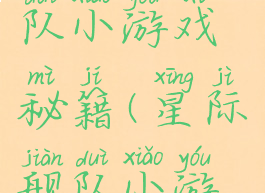 队小游戏
mì jí xīng jì
秘籍(星际
jiàn duì xiǎo yóu
舰队小游